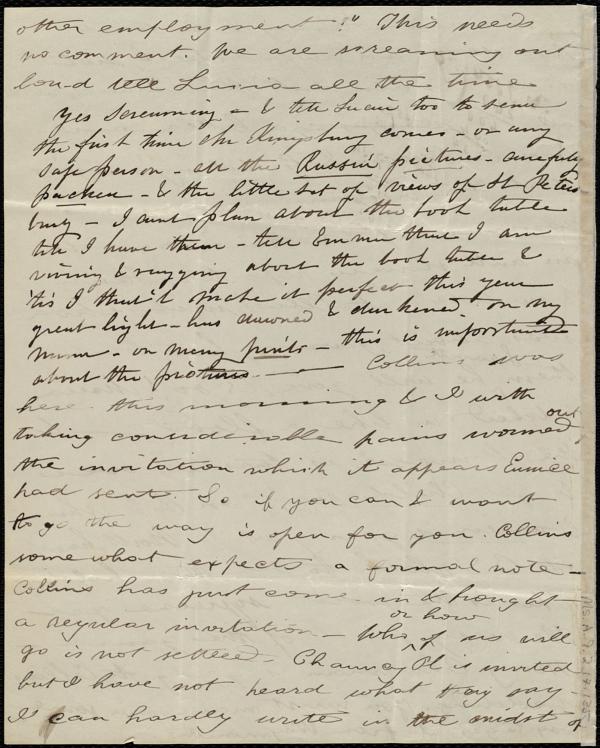 other employment!" This needs
no comment. We are screaming out
loud tell Louisa all the time
yes screaming - & tell Susan too to send
the first time the Kingsbury comes - or any
safe person - all the Russian pictures - carefully
packed - & the little set of views of St Peters
burg - I can't plan about the book table
till I have them - tell Emma that I am
&
'tis I that'll make it perfect this year
great light - has dawned & darkened on my
- on many points - this is important
about the pictures - Collins was
here this morning & I with out
taking considerable pains wormed
the invitation which it appears Eunice
had sent. So if you can & want
to go the way is open for you. Collins
somewhat expects a formal note -
Collins has just come in & brought
a regular invitation - Who or how of us will
go is not settled - Chauncy Pl is invited
but I have not heard what they say -
I can hardly write in the midst of